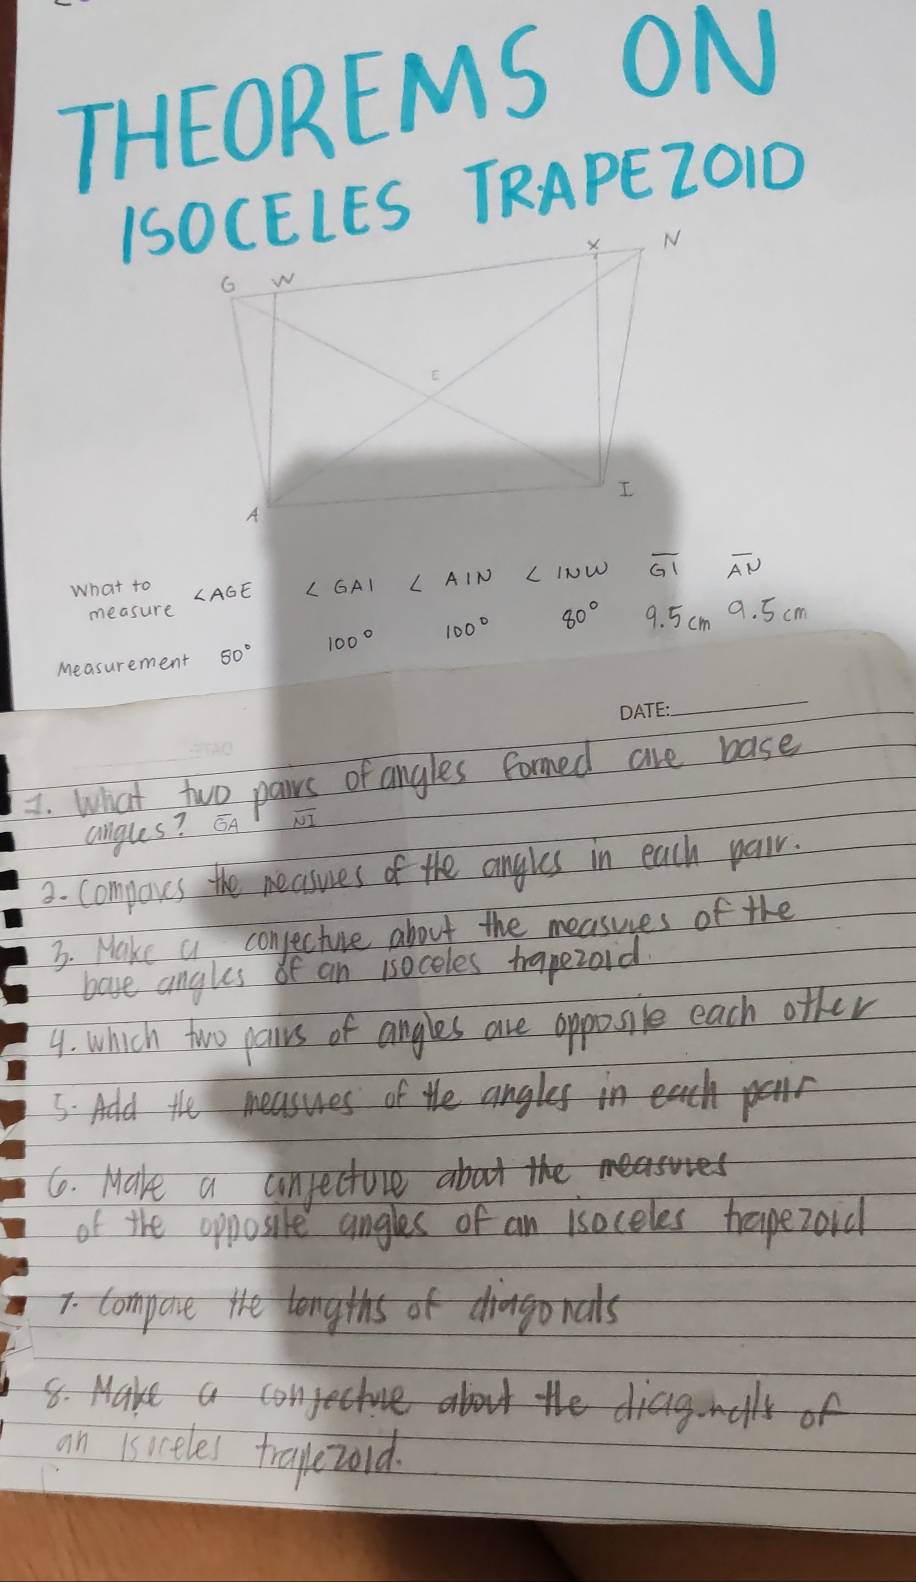 THEOREMS ON
ISOCELES TRAPEZOID
G W X N
E
A I
What to measure <AGE < GAI < AIN < INW GI AN
Measurement 50° 100° 100° 80° 9.5cm 9.5cm
DATE:
1. What two pairs of angles formed are base
angles? GA NI
2. Compares the measures of the angles in each pair.
3. Make a conjecture about the measures of the
base angles of an isoceles trapezoid.
4. Which two pairs of angles are opposite each other
5. Add the measures of the angles in each pair
6. Make a conjecture about the measures
of the opposite angles of an isoceles trapezoid
7. Compare the lengths of diagonals
8. Make a conjecture about the diagonals of
an isoceles trapezoid.